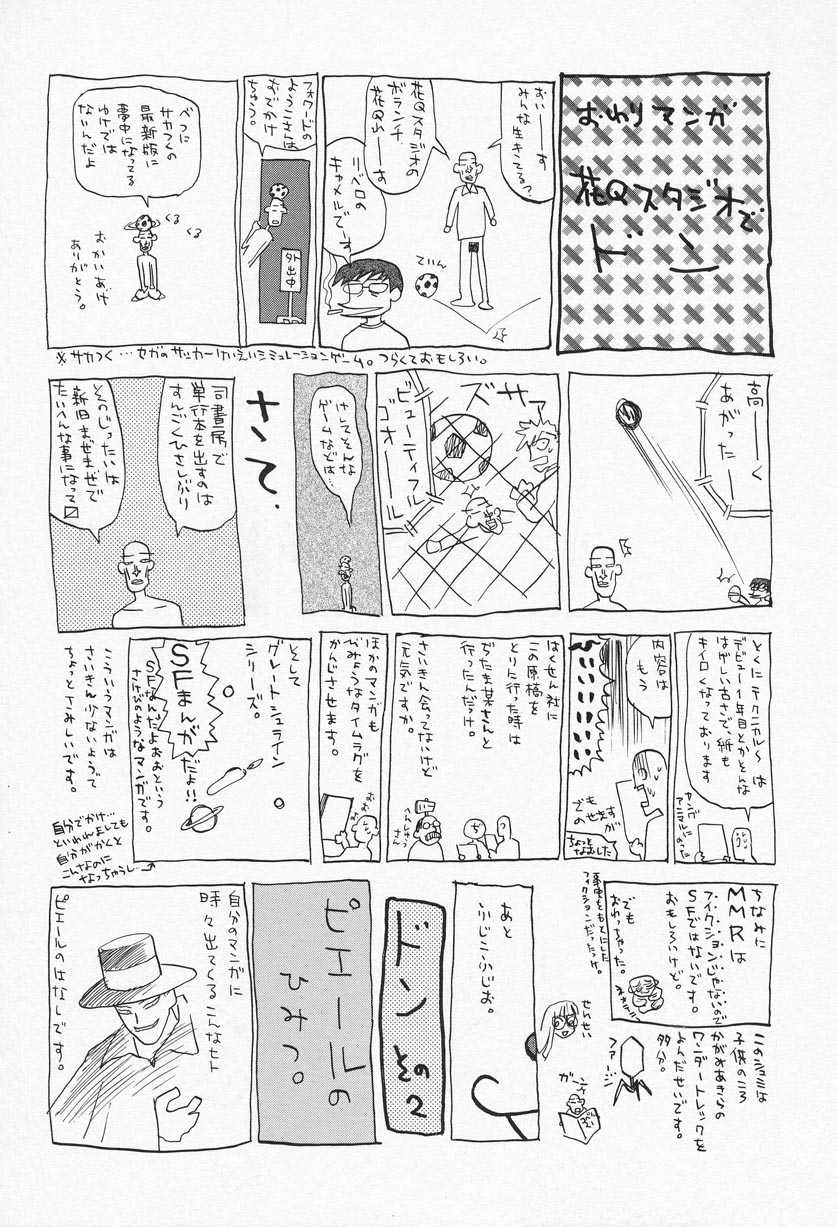 おわりマンガ
花Qスタジオで
ドン
おぃーーす
みんな生きてる?
花Qスタジオの
ボランチ、
花Q山ーす
リベロの
キャメルです
てぃん
フォワードの
ようこさんは
おでかけ
ちゅう。
外出中
べつに
サカつくの
最新版に
夢中になってる
わけでは
ないんだよ
くる
くる
おかいあげ
ありがとう。
※サカつく…セガのサッカーけいえいシミュレーションゲーム。つらくておもしろい。
高ーーく
あがったーー
ズサァ
ビューティフル
ゴオーール
けしてそんな
ゲームなどは…
さて、
司書房で
単行本を出すのは
すんごくひさしぶり
そのじったいは
新旧まぜまぜで
たいへんな事になって〼
とくにテクニカル〜は
デビュー1年目とかそんな
はげしい古さで、紙も
キイロくなっております
ヤング
アニマルにのった
内容は
もう
でも
のせますが
ちょっと
なおしました
はくせん社に
この原稿を
とりに行った時は
ぢたま某さんと
行ったんだっけ。
さいきん会ってないけど
元気ですか。
へんしゅう
さん
ぢ
ほかのマンガも
びみょうなタイムラグを
かんじさせます。
おぉ
おぉ
そして
グレートシュライン
シリーズ。
SFまんがだよ!!
SFなんだよおおという
さけびのようなマンガです。
こういうマンガは
さいきん少ないようで
ちょっとさみしいです。
自分でかけ…
といわれんとしても
自分がかくと
こんなのに
なっちゃうし…
ちなみに
MMRは
フィクションじゃないので
SFではないです。
おもしろいけど。
でも
おわっちゃった。
事実をもとにした
フィクションだったっけ。
このシュミは
子供のころ
かがみあきらの
ワンダートレックを
よんだせいです。
多分。
ファージ
せんせい
ガーン
あと
ふじこふじお。
ドンその2
ピエールの
ひみつ。
自分のマンガに
時々出てくるこんなヒト
ピエールのはなしです。